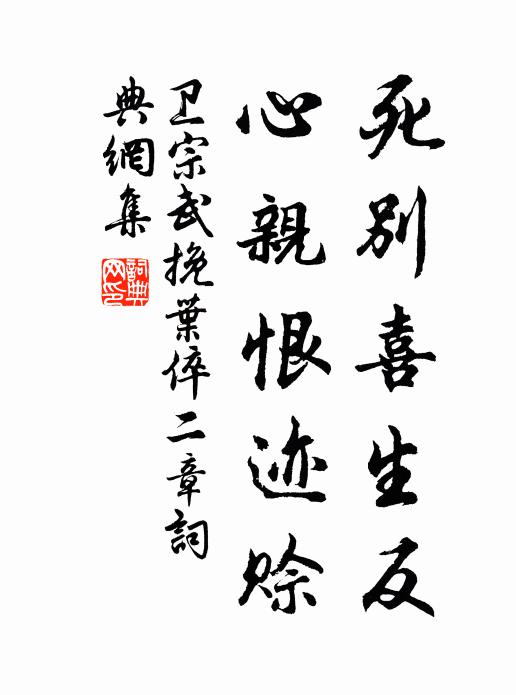 死别喜生反
心親恨迹赊
卫宗武挽葉倅二章詞
典網集
詞典
网印